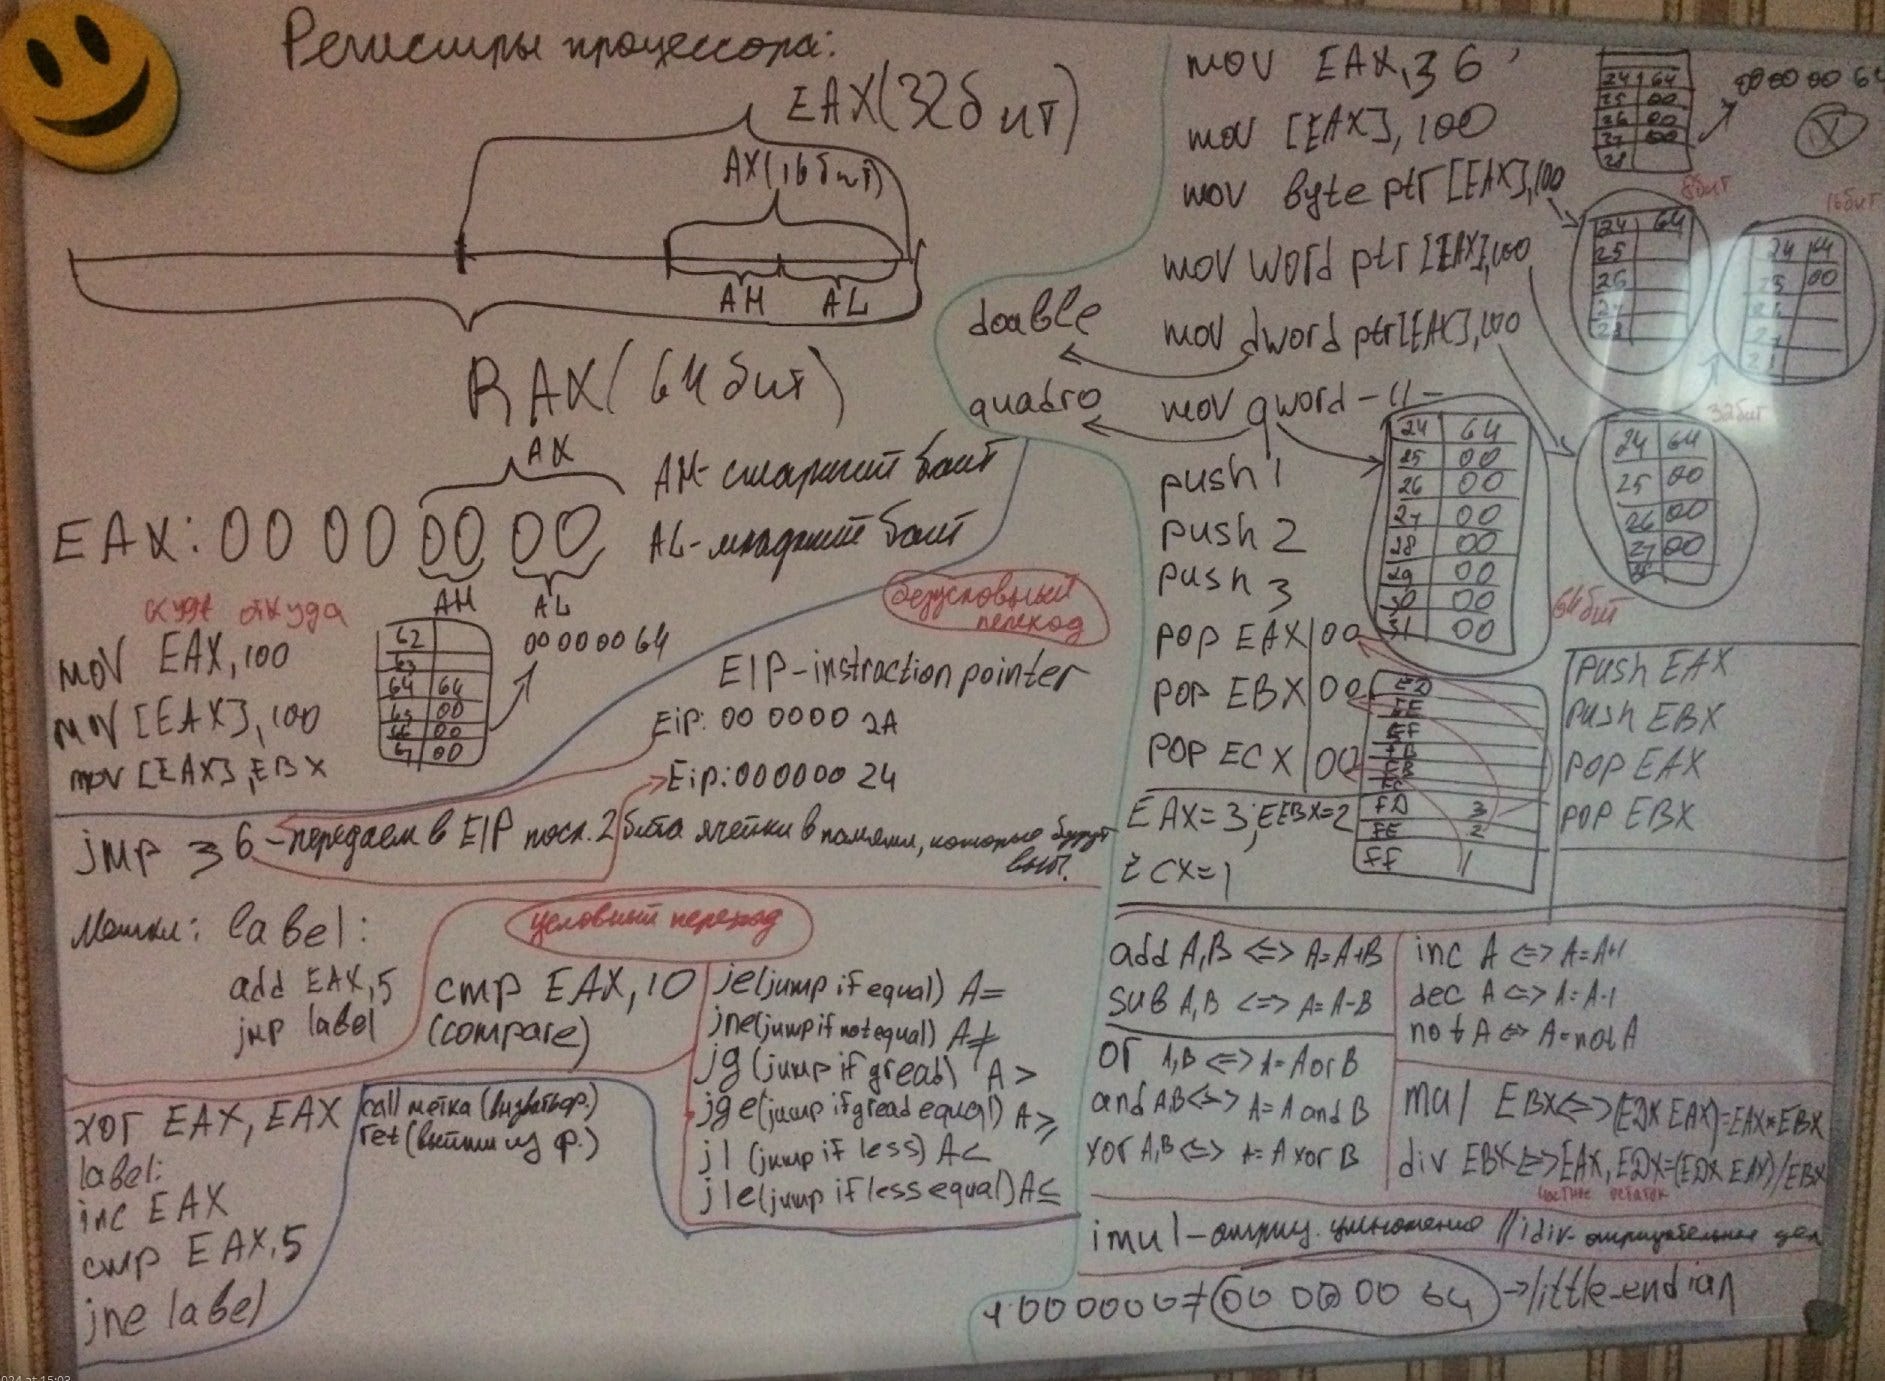 Регистры процессора:
EAX(32бит)
AX(16бит)
AH AL
RAX(64бит)
AX
EAX: 00 00 00 00
AH AL
AH-старший байт
AL-младший байт
куда откуда
mov EAX,100
mov [EAX],100
mov [EAX],EBX
62
63
64 64
65 00
66 00
67 00
00 00 00 64
безусловный
переход
EIP-instraction pointer
EiP: 00 0000 2A
Eip:000000 24
jmp 36-передаем в EIP посл. 2 бита ячейки в памяти, которые будут
вып.
Метки: label:
add EAX,5
jmp label
условный переход
cmp EAX,10
(compare)
je(jump if equal) A=
jne(jump if not equal) A≠
jg(jump if great) A>
jge(jump if great equal) A≥
jl (jump if less) A<
jle(jump if less equal) A≤
xor EAX, EAX
label:
inc EAX
cmp EAX,5
jne label
call метка (вызвать ф.)
ret(выйти из ф.)
mov EAX,36
mov [EAX],100
mov byte ptr [EAX],100
mov word ptr [EAX],100
double
mov dword ptr[EAX],100
quadro
mov qword -||-
24 64
25 00
26 00
27 00
28
00 00 00 64
8бит
24 64
25
26
27
28
16бит
24 64
25 00
32бит
24 64
25 00
26 00
27 00
64бит
24 64
25 00
26 00
27 00
28 00
29 00
30 00
31 00
push 1
push 2
push 3
pop EAX 00
pop EBX 00
pop ECX 00
EAX=3; EBX=2
ECX=1
FD 3
FE 2
FF 1
push EAX
push EBX
pop EAX
pop EBX
add A,B <=> A=A+B
sub A,B <=> A=A-B
or A,B <=> A=A or B
and A,B <=> A=A and B
xor A,B <=> A=A xor B
inc A <=> A=A+1
dec A <=> A=A-1
not A <=> A=not A
mul EBX<=>(EDX EAX)=EAX*EBX
div EBX<=>EAX,EDX=(EDX EAX)/EBX
частное остаток
imul-отриц. умножение //idiv-отрицательное дел
00 00 00 64 ->little-endian